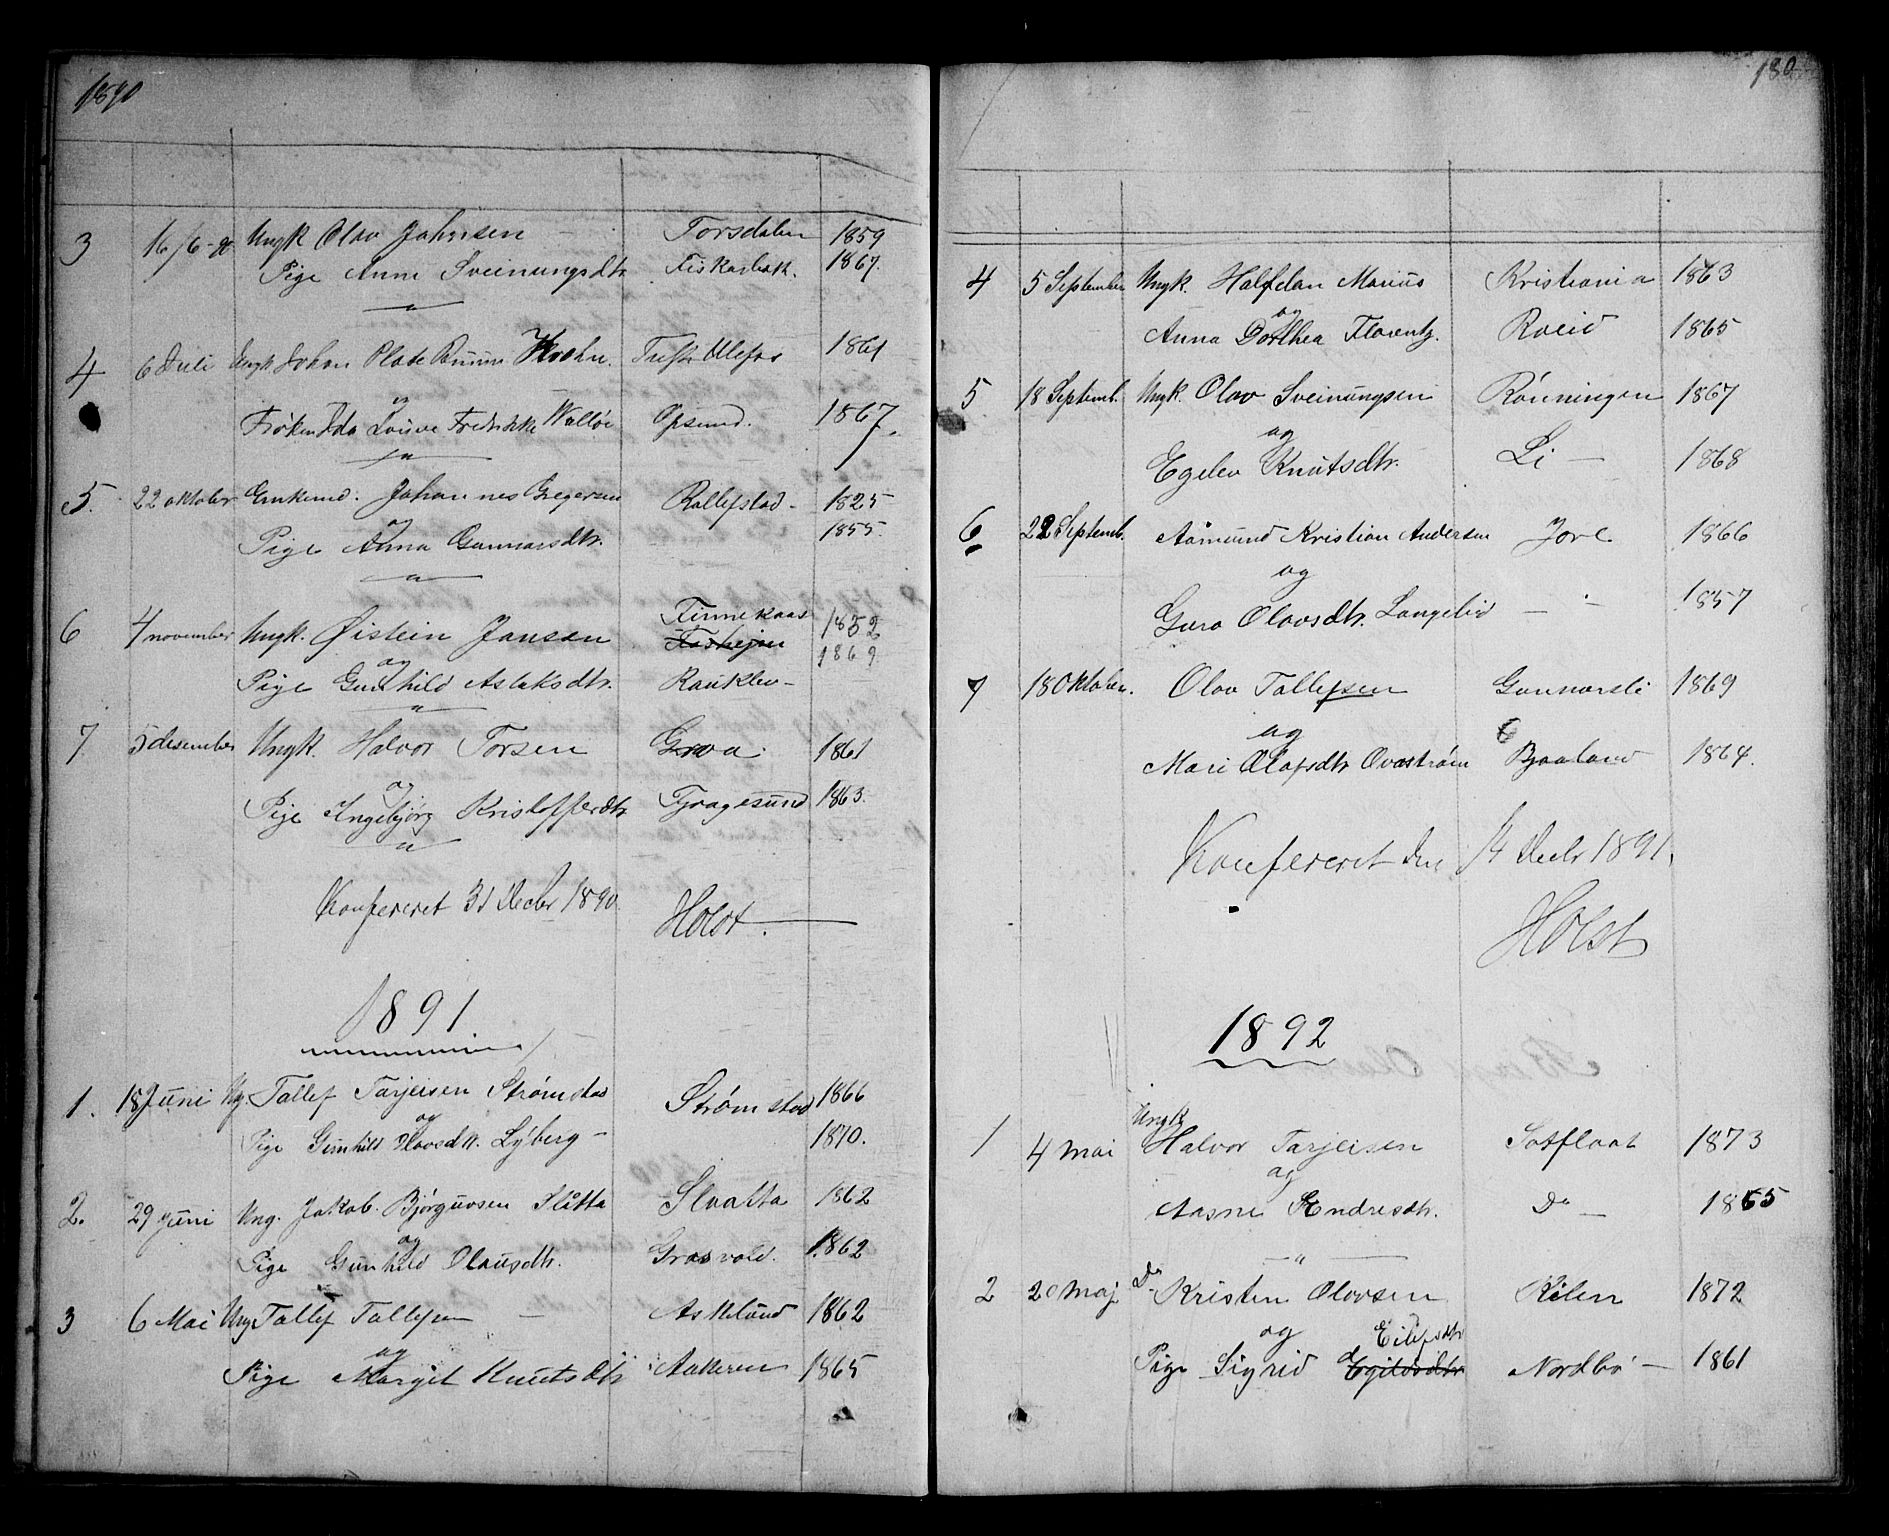 1890
3 16/6-90 Ungk Olav Johnsen Torsdalen 1859
Pige Anne Sveinungsdtr Fiskarbak. 1867.
4 6 Juli Ungk Johan Plate Bruun Krohn. Ulefos 1861
og
Frøken Ida Lovise Fredrikke Walløe Opsund. 1867.
5. 22 oktober Enkemd. Johannes Gregersen Rollefstad - 1825
og
Pige Anna Gunnarsdtr. 1855.
6 4 november Ungk. Øistein Jansen Finnekaas 1852
1869
og
Pige Gunhild Aslaksdtr. Rauklev -
7. 5 desember Ungk. Halvor Torsen Grova. 1861
og
Pige Ingebjørg Kristofferdtr Tjvagesund 1863.
Konfereret 31 Decbr 1890
Holst.
1891.
1. 18 Juni Ug. Tallef Tarjeisen Strømstad Strømstad 1866
og
Pige Gunhild Olavsdtr. Lyberg - 1870.
2. 29 juni Ung. Jakob Bjørguvsen Slåtta Slaatta 1862
og
Pige Gunhild Olausdtr. Grasvold. 1862
3 6 Mai Ung Tallef Tallefsen - Askelund 1862
og
Pige Margit Knutsdtr Aakeren 1865
180
4 5 September Ungk. Halfdan Marius Kristiania 1863
og
Anna Dorthea Florentz. Roeid 1865
5 18 Septemb. Ungk. Olav Sveinungsen Rønningen 1867
og
Egelev Knutsdtr. Li - 1868
6 22 Septemb. Aamund Kristian Andersen Jore. 1866
og
Guro Olavsdtr. Langelid - " - 1857
7 18 Oktober. Olav Tallefsen Gunnarsli 1869
og
Mari Olafsdtr Ovastrøm Bjaaland 1864.
Konfereret den 14 Decbr 1891.
Holst
1892
Ungk
1 4 Mai Halvor Tarjeisen Sotflaat 1873
og
Aasne Andresdtr. Do - 1865
- " -
2 20 Maj Do Kristen Olavsen Kilen 1872
og Eilefsdtr
Pige Sigrid Egildsdtr Nordbø - 1861